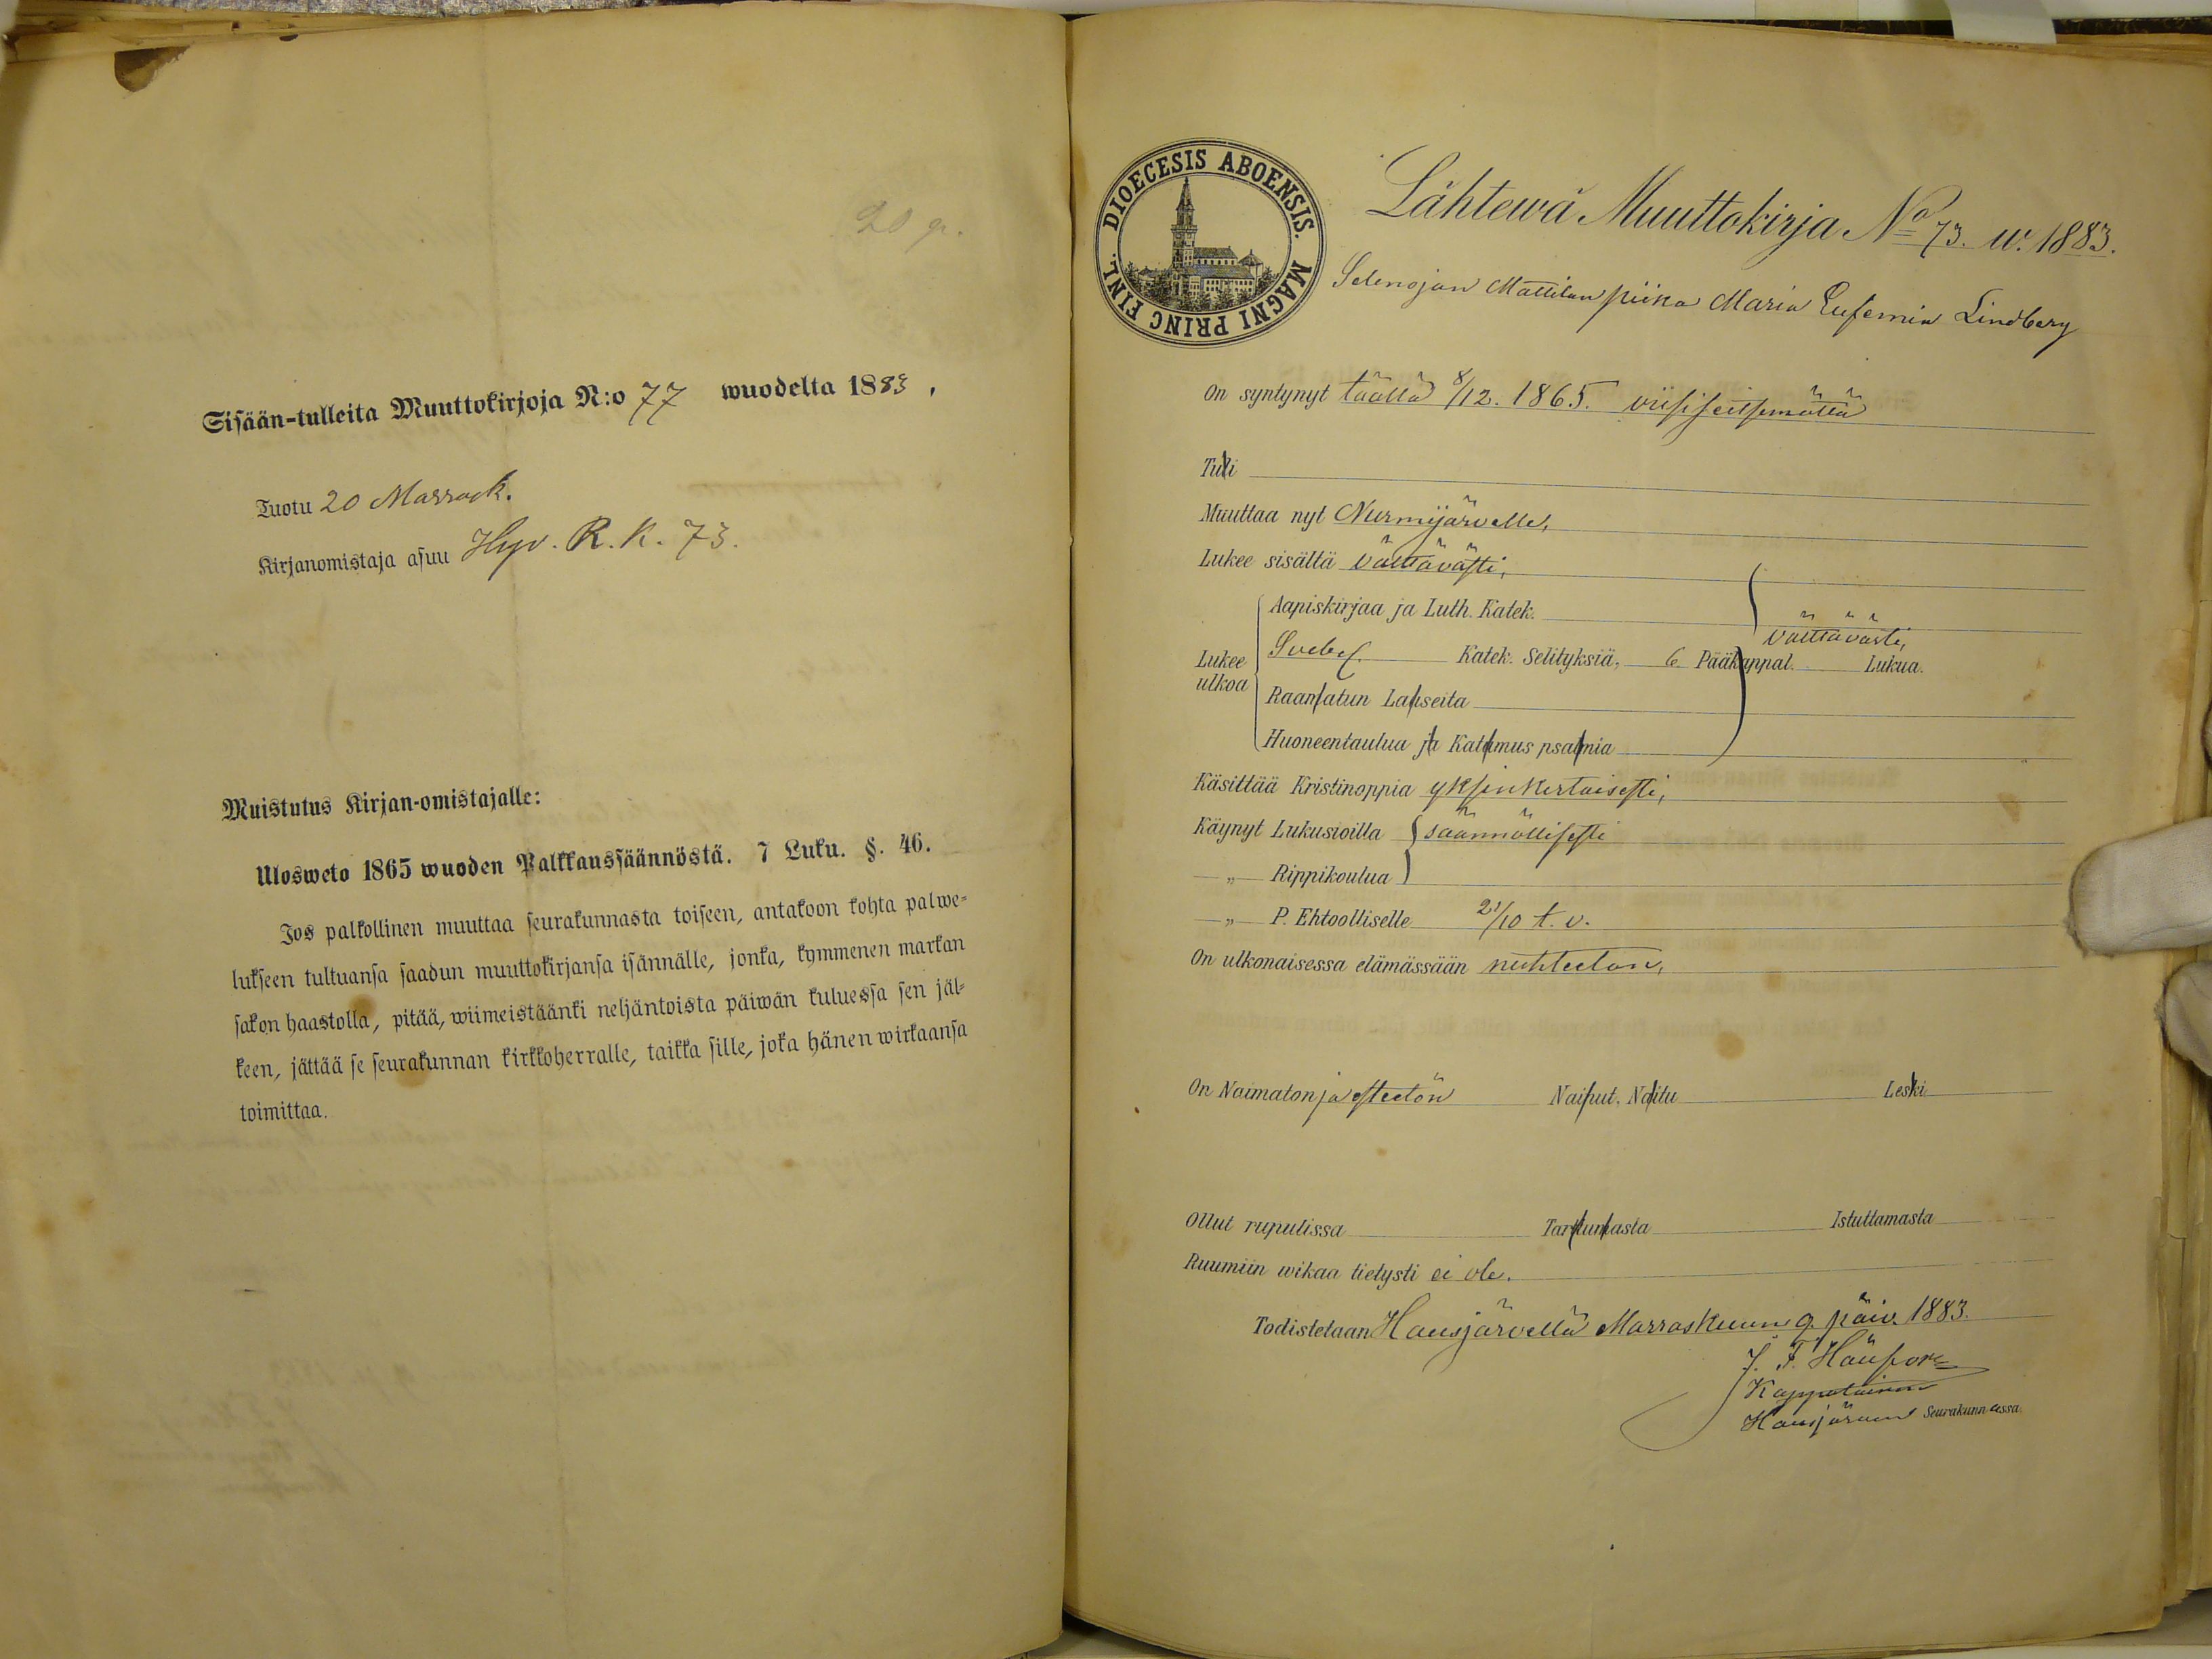 20 p.
Sisään-tulleita Muuttokirjoja N:o 77 wuodelta 1883.
Tuotu 20 Marrask.
Kirjanomistaja asuu Hyv. R. K. 73.
Muistutus Kirjan-omistajalle:
Ulosweto 1865 wuoden Palkkaussäännöstä. 7 Luku. §. 46.
Jos palkollinen muuttaa seurakunnasta toiseen, antakoon kohta palwe-
lukseen tultuansa saadun muuttokirjansa isännälle, jonka, kymmenen markan
sakon haastolla, pitää, wiimeistäänki neljäntoista päiwän kuluessa sen jäl-
keen, jättää se seurakunnan kirkkoherralle, taikka sille, joka hänen wirkaansa
toimittaa.
DIOECESIS ABOENSIS. MAGNI PRINC FINL.
Lähtewä Muuttokirja No 73. w. 1883.
Selenojan Mattilan piika Maria Eufemia Lindberg
On syntynyt täällä 8/12. 1865. viisiseitsemättä
Tuli
Muuttaa nyt Nurmijärvelle,
Lukee sisältä välttävästi,
Lukee ulkoa
Aapiskirjaa ja Luth. Katek.
välttävästi,
Svebel. Katek. Selityksiä, 6 Pääkappal. Lukua.
Raamatun Lauseita
Huoneentaulua ja Katumus psalmia
Käsittää Kristinoppia yksinkertaisesti,
Käynyt Lukusioilla säännöllisesti
„ Rippikoulua
„ P. Ehtoolliselle 21/10 t. v.
On ulkonaisessa elämässään nuhteeton,
On Naimaton ja esteetön Nainut. Naitu Leski
Ollut rupulissa Tartunnasta Istuttamasta
Ruumiin wikaa tietysti ei ole.
Todistetaan Hausjärvellä Marraskuun 9. päiv. 1883.
J. F. Häufors
Kappalainen
Hausjärven Seurakunnassa.